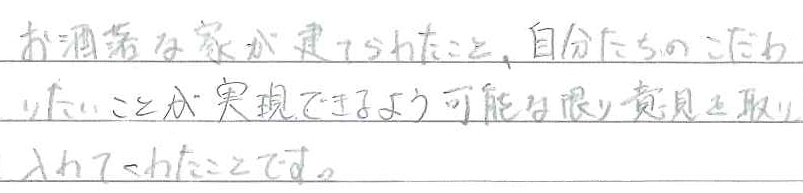 お洒落な家が建てられたこと、自分たちのこだわ
りたいことが実現できるよう可能な限り意見を取り
入れてくれたことです。